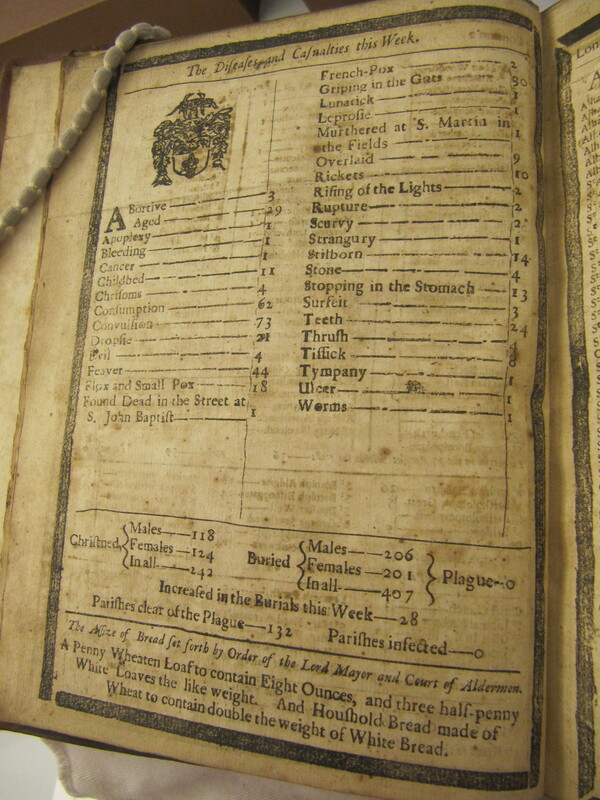 The Diseases and Casualties this Week.
Abortive 3
Aged 29
Apoplexy 1
Bleeding 1
Cancer 1
Childbed 11
Chrisoms 4
Consumption 62
Convulsion 73
Dropsie 21
Evil 4
Feaver 44
Flox and Small Pox 18
Found Dead in the Street at
S. John Baptist 1
French-Pox 2
Griping in the Guts 30
Lunatick 1
Leprosie 1
Murthered at S. Martin in
the Fields 1
Overlaid 9
Rickets 10
Rising of the Lights 2
Rupture 2
Scurvy 2
Strangury 1
Stilborn 14
Stone 4
Stopping in the Stomach 13
Surfeit 3
Teeth 24
Thrush 4
Tissick
Tympany 1
Ulcer 1
Worms 1
Christned Males 118
Females 124
In all 242
Buried Males 206
Females 201
In all 407
Plague 0
Increased in the Burials this Week 28
Parishes clear of the Plague 132 Parishes infected 0
The Assize of Bread set forth by Order of the Lord Mayor and Court of Aldermen.
A Penny Wheaten Loaf to contain Eight Ounces, and three half-penny
White Loaves the like weight. And Houshold Bread made of
Wheat to contain double the weight of White Bread.
Lon